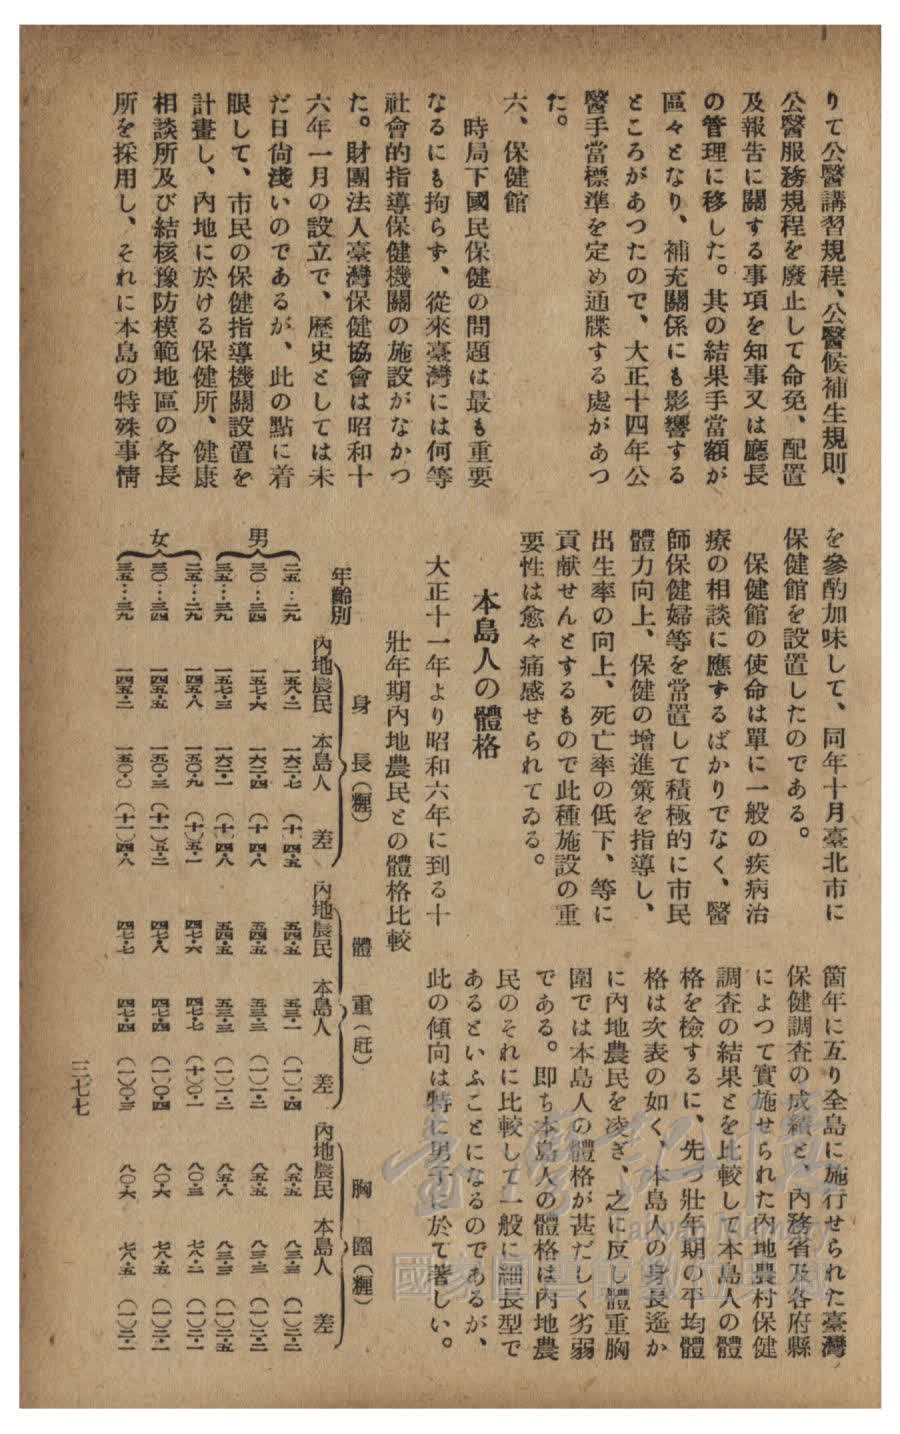 りて公醫講習規程、公醫候補生規則、
公醫服務規程を廢止して命免、配置
及報吿に關する事項を知事又は廳長
の管理に移した。其の結果手當額が
區々となり、補充關係にも影響する
ところがあつたので、大正十四年公
醫手當標準を定め通牒する處があつ
た。
六、保健館
時局下國民保健の問題は最も重要
なるにも拘らず、從來臺灣には何等
社會的指導保健機關の施設がなかつ
た。財團法人臺灣保健協會は昭和十
六年一月の設立で、歷史としては未
だ日尙淺いのであるが、此の點に着
眼して、市民の保健指導機關設置を
計畫し、內地に於ける保健所、健康
相談所及び結核豫防模範地區の各長
所を採用し、それに本島の特殊事情
を參酌加味して、同年十月臺北市に
保健館を設置したのである。
保健館の使命は單に一般の疾病治
療の相談に應ずるばかりでなく、醫
師保健婦等を常置して積極的に市民
體力向上、保健の增進策を指導し、
出生率の向上、死亡率の低下、等に
貢献せんとするもので此種施設の重
要性は愈々痛感せられてゐる。
本島人の體格
大正十一年より昭和六年に到る十
箇年に亙り全島に施行せられた臺灣
保健調査の成績と、內務省及各府縣
によつて實施せられた內地農村保健
調査の結果とを比較して本島人の體
格を檢するに、先つ壯年期の平均體
格は次表の如く、本島人の身長遙か
に內地農民を凌ぎ、之に反し體重胸
圍では本島人の體格が甚だしく劣弱
である。卽ち本島人の體格は內地農
民のそれに比較して一般に細長型で
あるといふことになるのであるが、
此の傾向は特に男子に於て著しい。
壯年期內地農民との體格比較
身長(糎) 體重(瓩) 胸圍(糎)
年齡別 內地農民 本島人 差 內地農民 本島人 差 內地農民 本島人 差
男 二五…二九 一五八・二 一六二・七 (十)四・五 五四・五 五三・一 (一)一・四 八五・五 八三・三 (一)二・二
三〇…三四 一五七・六 一六二・四 (十)四・八 五四・五 五三・三 (一)一・二 八五・五 八三・三 (一)二・二
三五…三九 一五七・三 一六二・一 (十)四・八 五四・五 五三・三 (一)一・二 八五・八 八三・三 (一)二・五
女 二五…二九 一四五・八 一五〇・九 (十)五・一 四七・六 四七・七 (十)〇・一 八〇・三 七八・二 (一)二・一
三〇…三四 一四五・五 一五〇・三 (十)五・二 四七・八 四七・四 (一)〇・四 八〇・六 七八・五 (一)二・一
三五…三九 一四五・二 一五〇・〇 (十)四・八 四七・七 四七・四 (一)〇・三 八〇・六 七八・五 (一)二・一
三七七